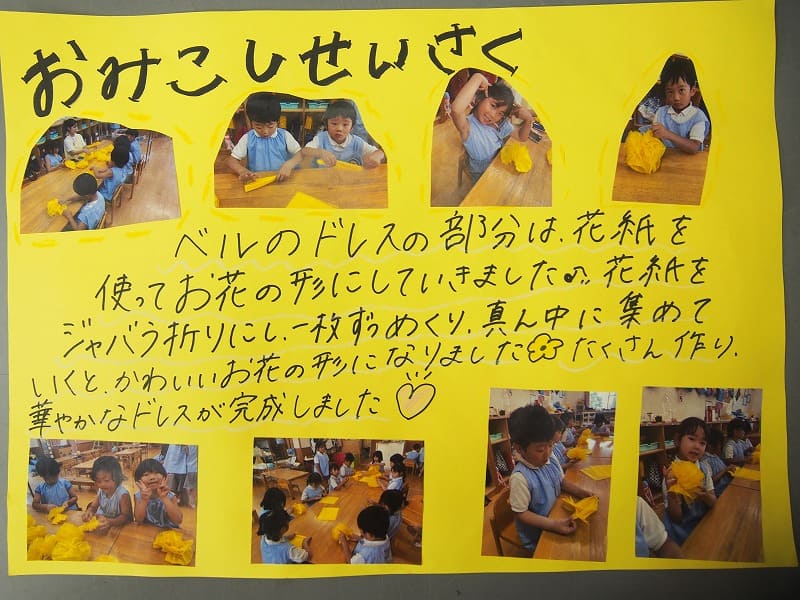 おみこしせいさく
ベルのドレスの部分は、花紙を
使ってお花の形にしていきました♫ 花紙を
ジャバラ折りにし、一枚ずつめくり、真ん中に集めて
いくと、かわいいお花の形になりました たくさん作り、
華やかなドレスが完成しました